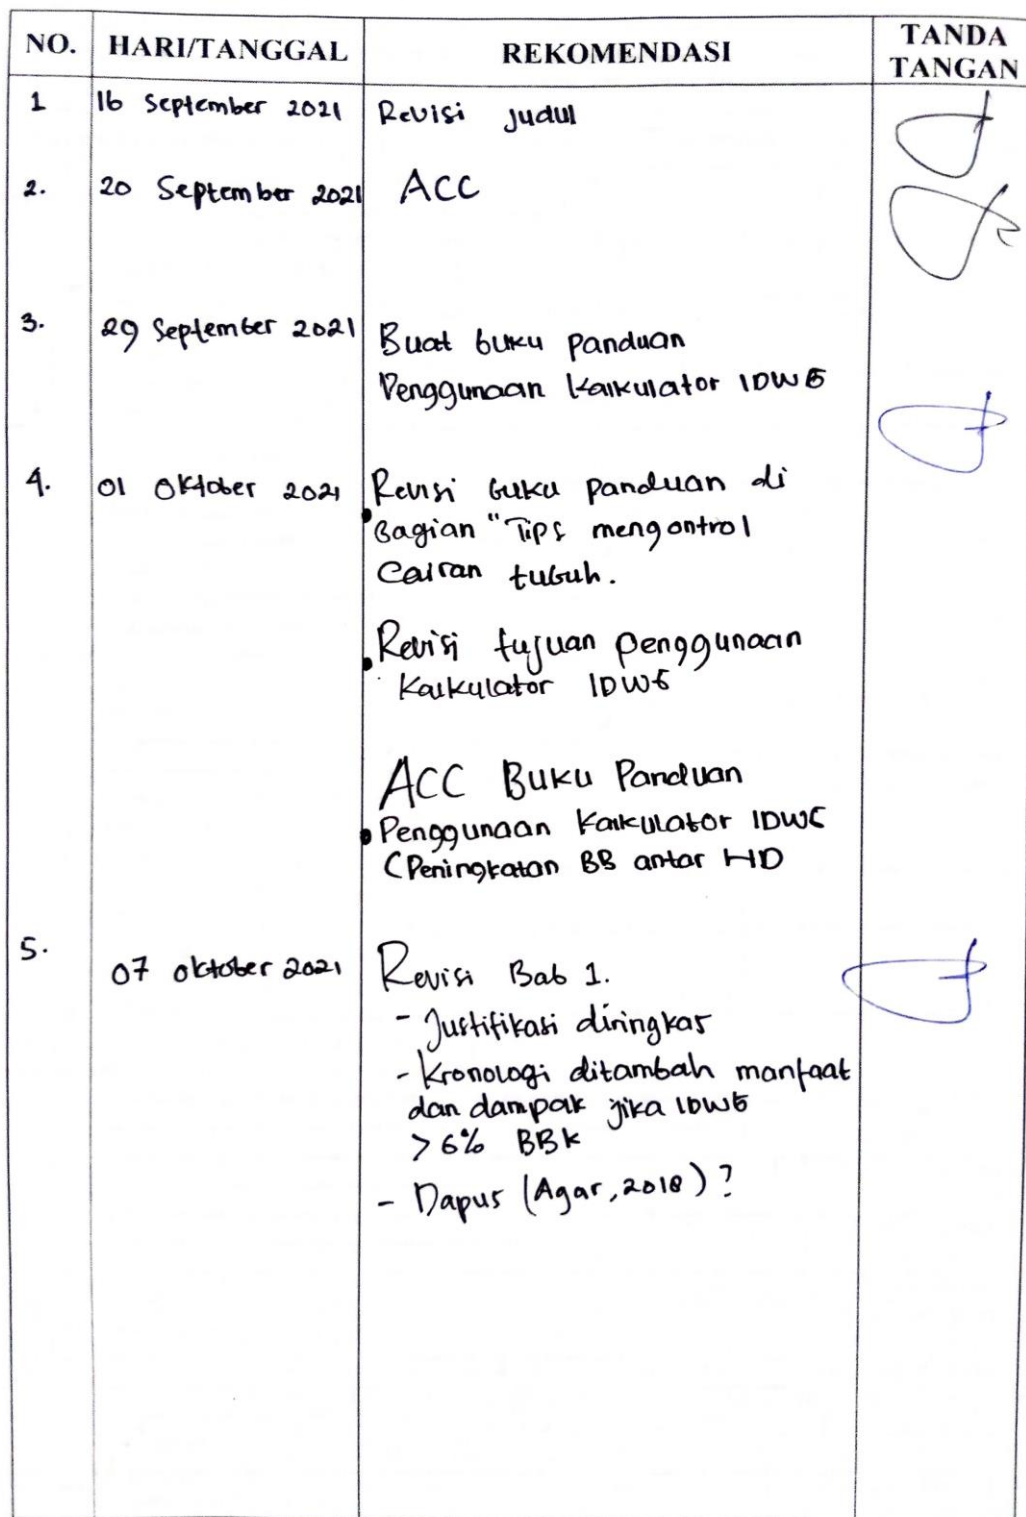 NO. HARI/TANGGAL REKOMENDASI TANDA TANGAN
1 16 September 2021 Revisi Judul
2. 20 September 2021 ACC
3. 29 September 2021 Buat buku panduan
Penggunaan Kalkulator IDWG
4. 01 Oktober 2021 Revisi buku panduan di
Bagian "Tips mengontrol
Cairan tubuh.
• Revisi tujuan penggunaan
Kalkulator IDWG
ACC Buku Panduan
• Penggunaan Kalkulator IDWG
(Peningkatan BB antar HD
5. 07 Oktober 2021 Revisi Bab 1.
- Justifikasi diringkas
- Kronologi ditambah manfaat
dan dampak jika IDWG
> 6% BBK
- Dapus (Agar, 2018) ?